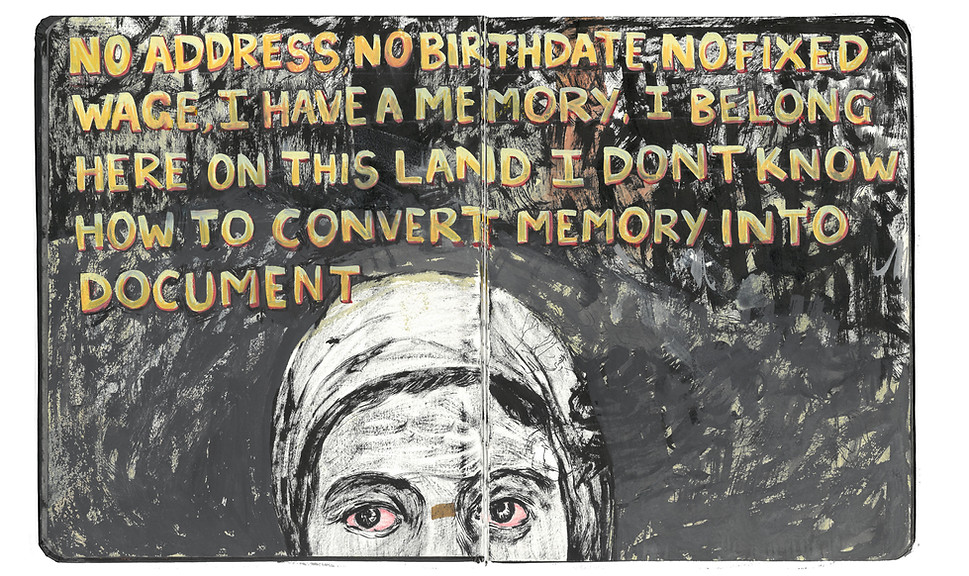 NO ADDRESS, NO BIRTHDATE NO FIXED
WAGE, I HAVE A MEMORY. I BELONG
HERE ON THIS LAND I DONT KNOW
HOW TO CONVERT MEMORY INTO
DOCUMENT